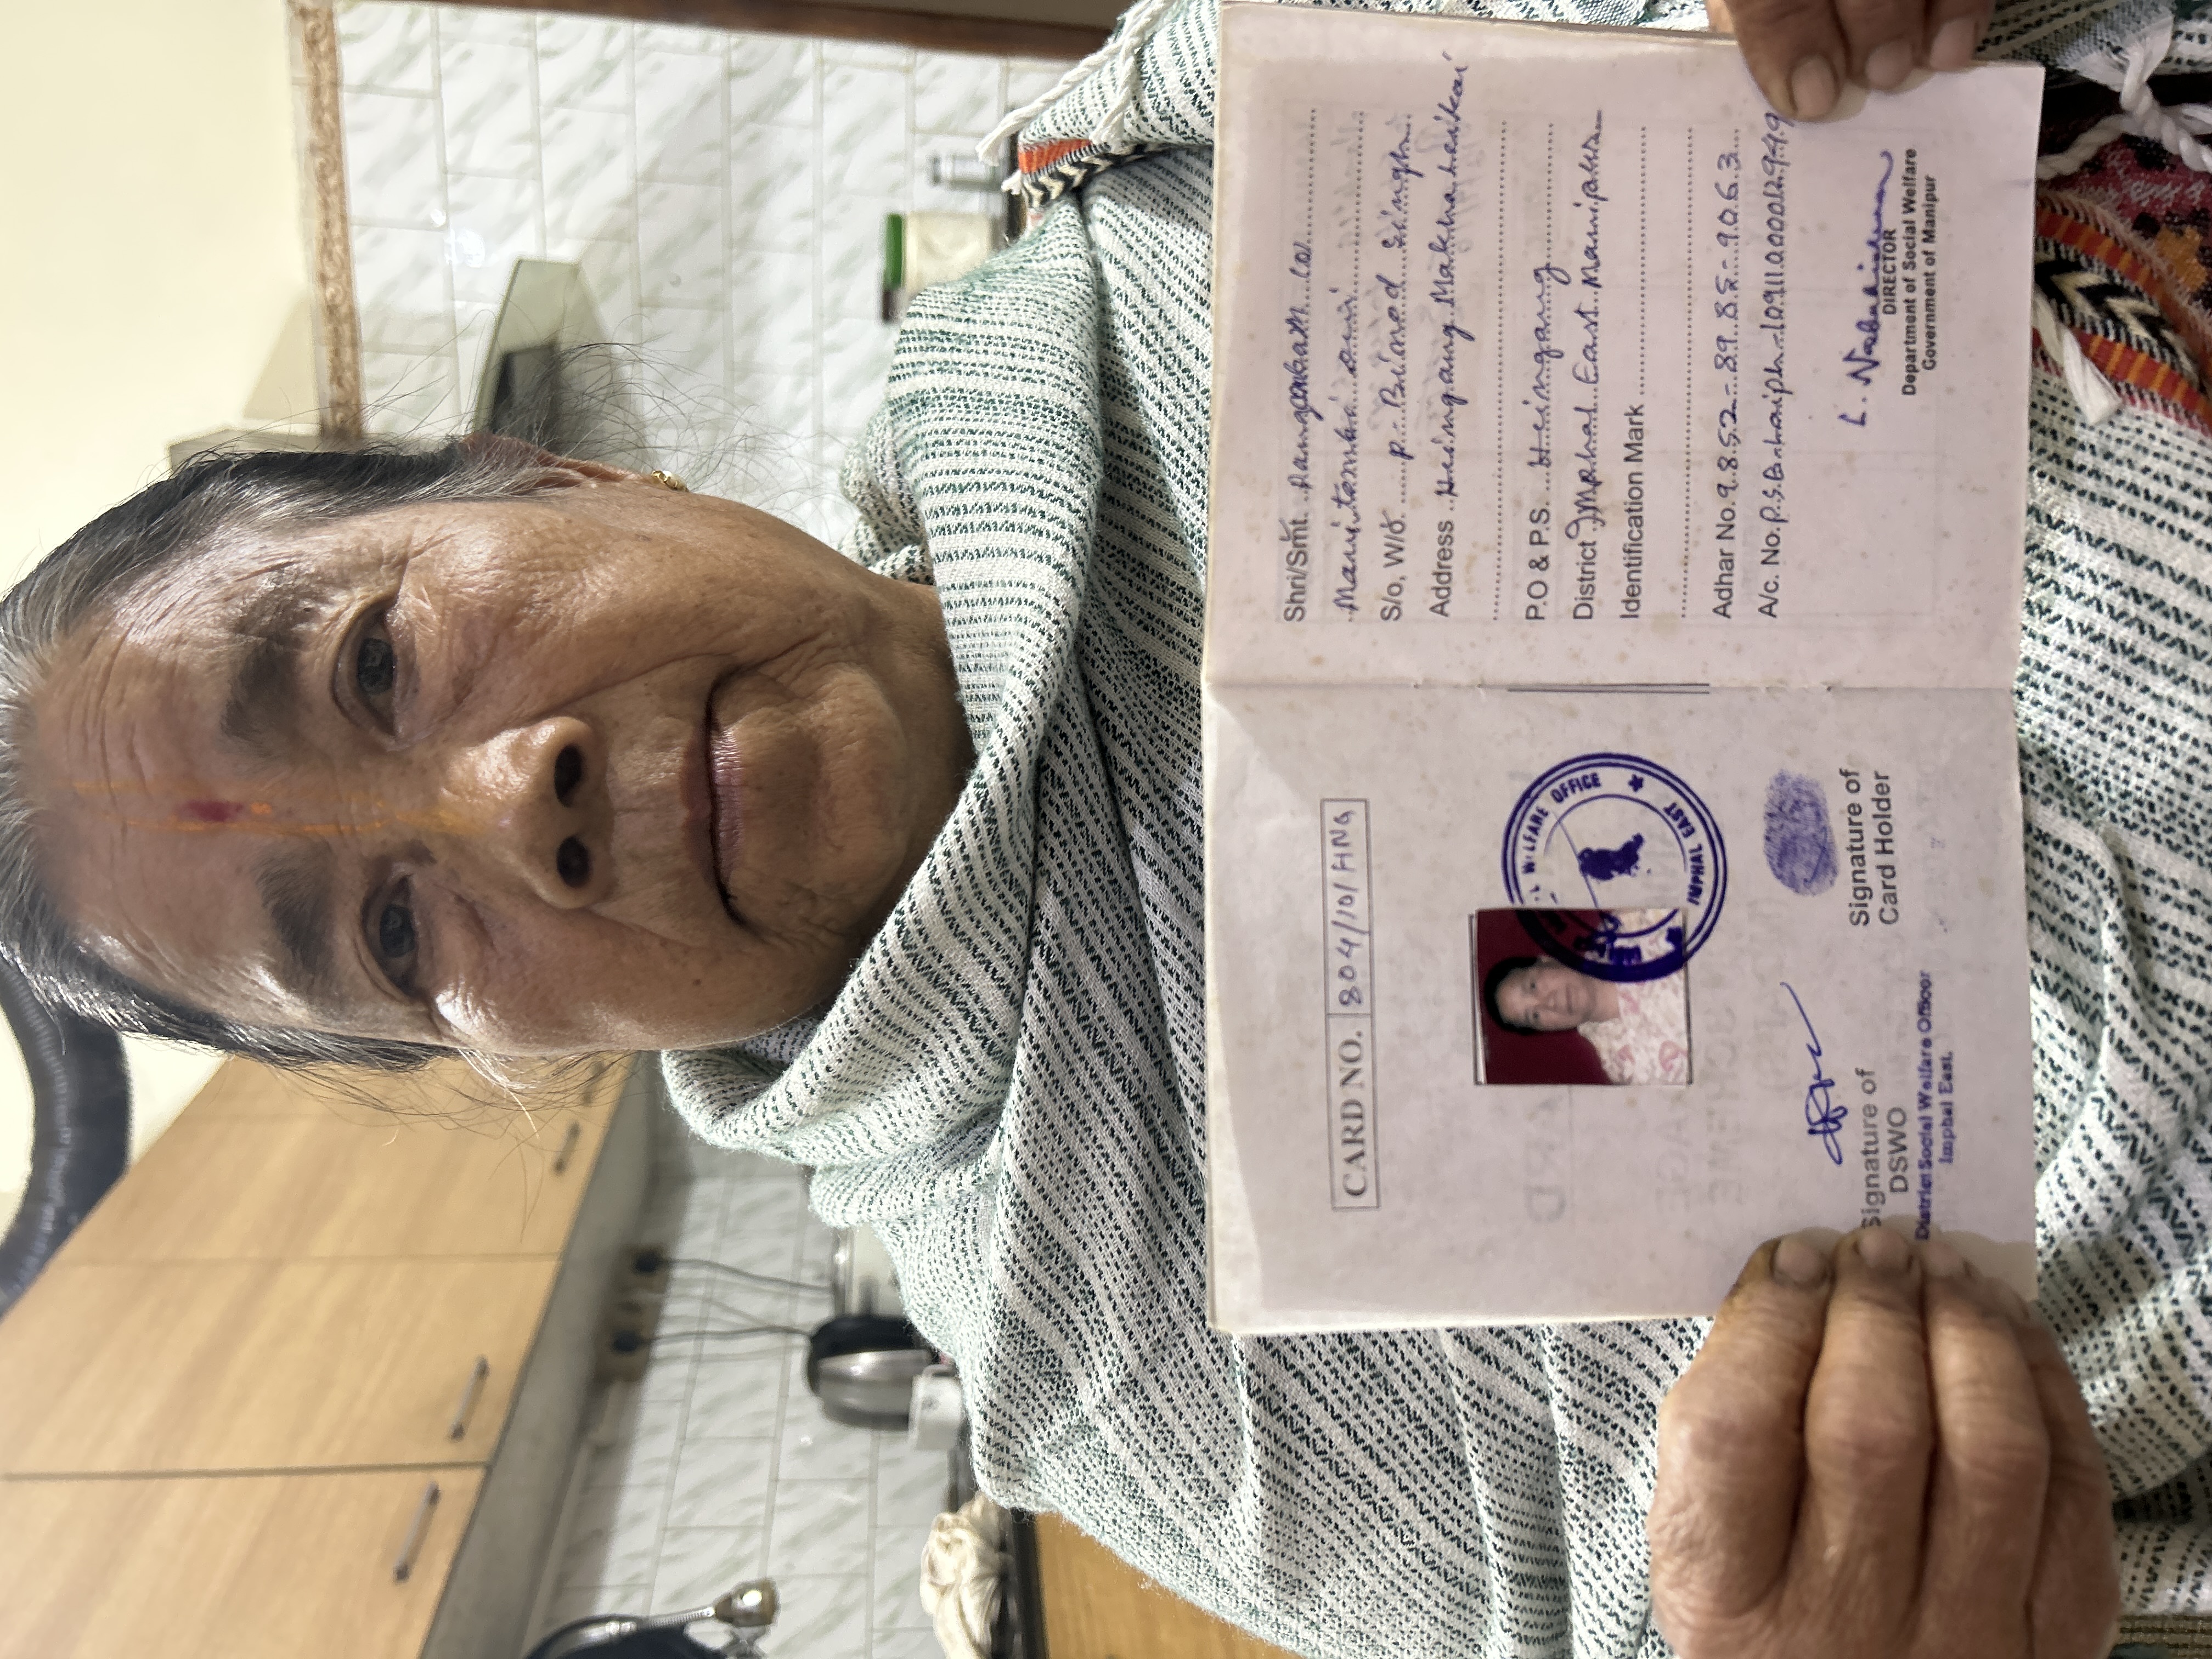 CARD NO. 804/10/HNG
WELFARE OFFICE
IMPHAL EAST
Signature of
DSWO
District Social Welfare Officer
Imphal East.
Signature of
Card Holder
Shri/Smt.
S/o, W/o P. Binod Singh
Address Heingang Makha Leikai
P.O & P.S. Heingang
District Imphal East Manipur
Identification Mark
Adhar No. 9852-8985-9063
A/c. No.
DIRECTOR
Department of Social Welfare
Government of Manipur